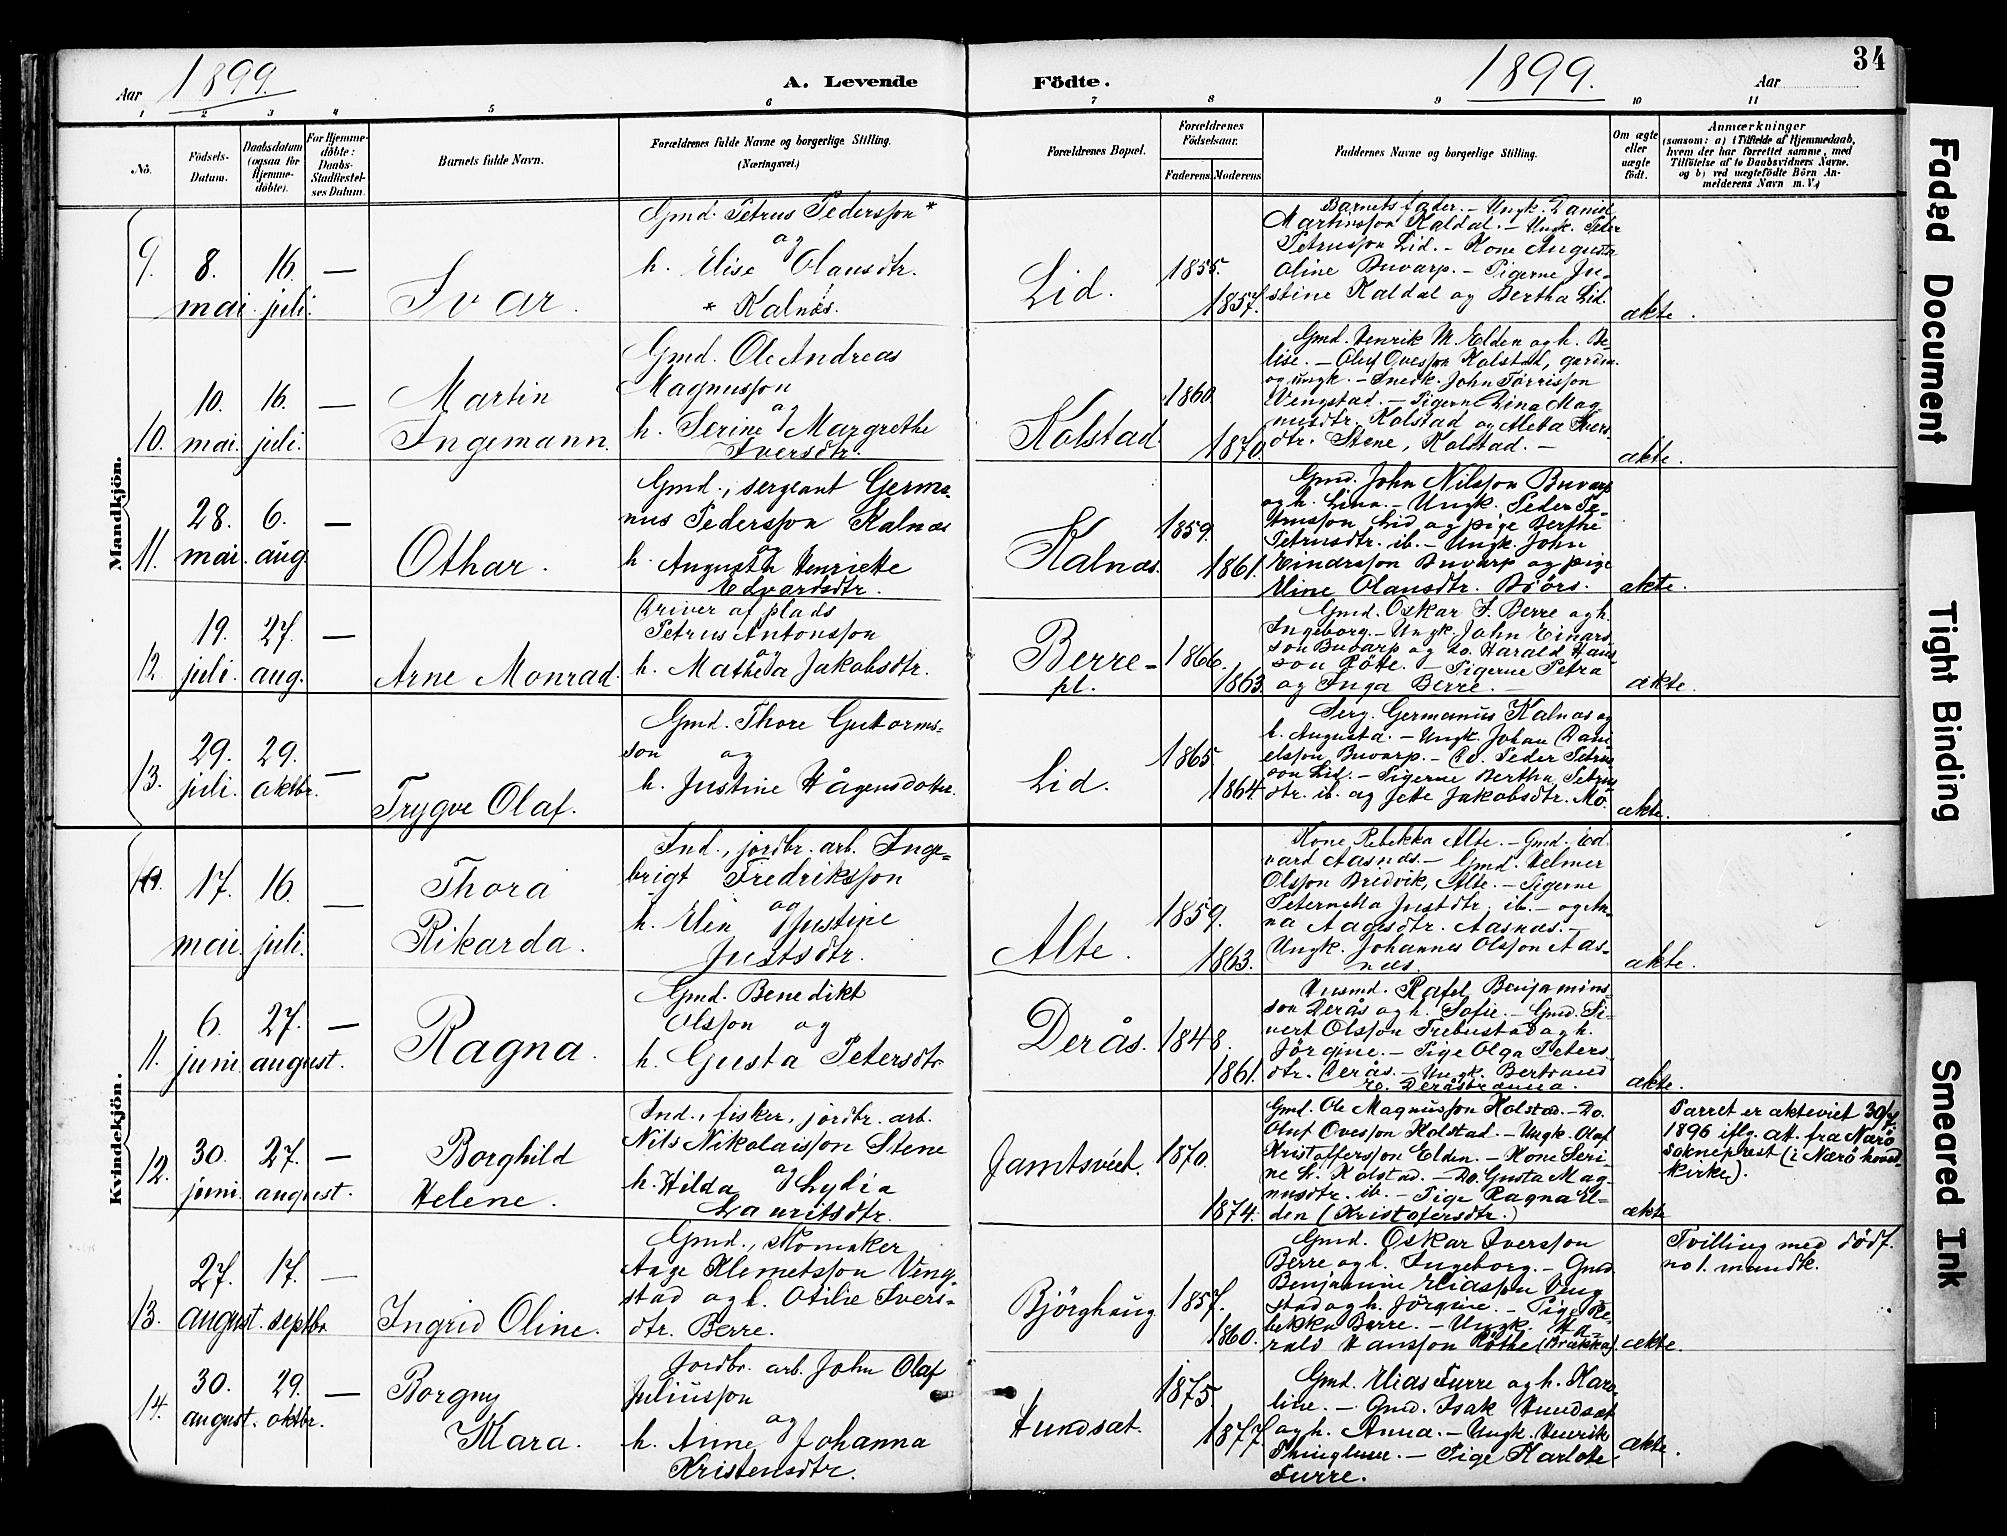 Aar 1899. A. Levende Fødte. 1899. Aar 34
1 2 3 4 5 6 7 8 9 10 11
No. Fødsels-Datum. Daabsdatum (ogsaa for Hjemmedøbte). For Hjemmedøbte: Daabs-Stadfæstelses Datum. Barnets fulde Navn. Forældrenes fulde Navne og borgerlige Stilling. (Næringsvei.) Forældrenes Bopæl. Forældrenes Fødselsaar. Faderens. Moderens. Faddernes Navne og borgerlige Stilling. Om ægte eller uægte født. Anmærkninger
(saasom: a) i Tilfælde af Hjemmedaab,
hvem der har forrettet samme, med
Tilføielse af to Daabsvidners Navne.
og b) ved uægtefødte Børn An-
melderens Navn m. V.)
Mandkjön.
9. 8. mai. 16. juli. —
Ivar.
Gmd. Petrus Pedersson *
og
h. Elise Olausdtr.
* Kalnes.
Lid.
1855.
1857.
Barnets fader. – Ungk. Daniel
Martinsson Kaldal. – Ungk. Peder
Petrusson Lid. – Kone Augusta
Oline Buvarp. – Pigerne Ju-
stine Kaldal og Bertha Lid.
ækte.
10. 10. mai. 16. juli. —
Martin
Ingemann.
Gmd. Ole Andreas
Magnusson
og
h. Serine Margrethe
Iversdtr.
Kolstad
1860
1870
Gmd. Henrik M. Elden og h. Be-
lise. – Oluf Ovesson Kolstad, gardm.
og ungk. – Snedk. John Törrisson
Vengstad. – Pigerne Lina Mag-
nusdtr. Kolstad og Aleta Ivers-
dtr. Stene, Kolstad. –
ækte.
11. 28. mai. 6. aug. —
Othar.
Gmd., sergeant Germa-
nus Pedersson Kalnes
og
h. Augusta Henriette
Edvardsdtr.
Kalnes.
1859.
1861.
Gmd. John Nilsson Buvarp
og h. Lina. – Ungk. Peder Pe-
trusson Lid og pige Berthe
Petrusdtr. ib. – Ungk. John
Einarsson Buvarp og pige
Eline Olausdtr. Böörs.
ækte.
12. 19. juli. 27. aug. —
Arne Monrad.
Driver af plads
Petrus Antonsson
og
h. Mathea Jakobsdtr.
Berre-
pl.
1866.
1863.
Gmd. Oskar I. Berre og h.
Ingeborg. – Ungk. John Einars-
son Buvarp og Do. Harald Hans-
son Röte. – Pigerne Petra
og Inga Berre. –
ækte.
13. 29. juli. 29. oktbr. —
Trygve Olaf.
Gmd. Thore Guttorms-
son og
h. Justine Hågensdotter.
Lid.
1865.
1864.
Serg. Germanus Kalnes og
h. Augusta. – Ungk. Johan Dani-
elsson Buvarp. – Do. Peder Petrus-
son Lid. – Pigerne Bertha Petrus-
dtr. ib. og Jette Jakobsdtr. Mo.
ækte.
Kvindekjön.
10. 17. mai. 16. juli. —
Thora
Rikarda.
Ind., jordbr. arb. Inge-
brigt Fredriksson
og
h. Elin Justine
Justsdtr.
Alte.
1859.
1863.
Kone Rebekka Alte. – Gmd. Ed-
vard Aasnes. – Gmd. Helmer
Olsson Bredvik, Alte. – Pigerne
Peternella Justdtr. ib. – og An-
na Aagesdtr. Aasnes. –
Ungk. Johannes Olsson Aas-
nes.
ækte.
11. 6. juni. 27. august. —
Ragna.
Gmd. Benedikt
Olsson og
h. Gusta Petersdtr.
Derås.
1848.
1861.
Husmd. Rafel Benjamins-
son Derås og h. Sofie. – Gmd. Si-
vert Olsson Trebustad og h.
Jörgine. – Pige Olga Peters-
dtr. Derås. – Ungk. Bertrand
ækte.
12. 30. juni. 27. august. —
Borghild
Helene.
Ind., fisker, jordbr. arb.
Nils Nikolaisson Stene
og
h. Hilda Lydia
Lauritsdtr.
Jamtsveet.
1870.
1874.
Gmd. Ole Magnusson Kolstad. – Do.
Oluf Ovesson Kolstad. – Ungk. Olaf
Kristoffersson Elden. – Kone Seri-
ne L. Kolstad. – Do. Gusta Mag-
nusdtr. ib. – Pige Ragna El-
den (Kristofersdtr.)
ækte
Parret er ækteviet 30/7.
1896 iflg. att. fra Nærö
sokneprest (i Nærö hoved-
kirke).
13. 27. august. 17. septbr. —
Ingrid Oline.
Gmd., skomaker
Aage Klemetsson Veng-
stad og h. Otilie Ivers-
dtr. Berre.
Bjørghaug
1857.
1860.
Gmd. Oskar Iversson
Berre og h. Ingeborg. – Gmd.
Benjamine Eliasson Veng-
stad og h. Jörgine. – Pige Re-
bekka Berre. – Ungk. Ha-
rald Hansson Röthe (Brakka).
ækte.
Tvilling med dödf.
no 1. mandk.
14. 30. august. 29. oktbr. —
Borgny
Klara.
Jordbr. arb. John Olaf
Juliusson
og
h. Anne Johanna
Kristensdtr.
Hundsæt.
1875.
1877.
Gmd. Elias Furre og h. Karo-
line. – Gmd. Isak Hundsæt
og h. Anna. – Ungk. Henrik
– Pige Karlotte
Furre.
ækte.
Faded Document
Tight Binding
Smeared Ink